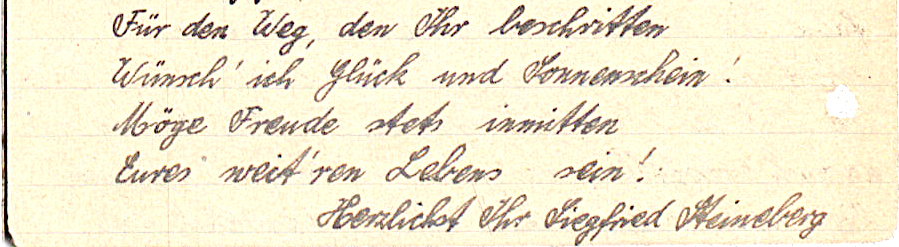 Für den Weg, den Ihr beschritten
Wünsch' ich Glück und Sonnenschein!
Möge Freude stets inmitten
Eures weit'ren Lebens sein!
Herzlichst Ihr Siegfried Steineberg